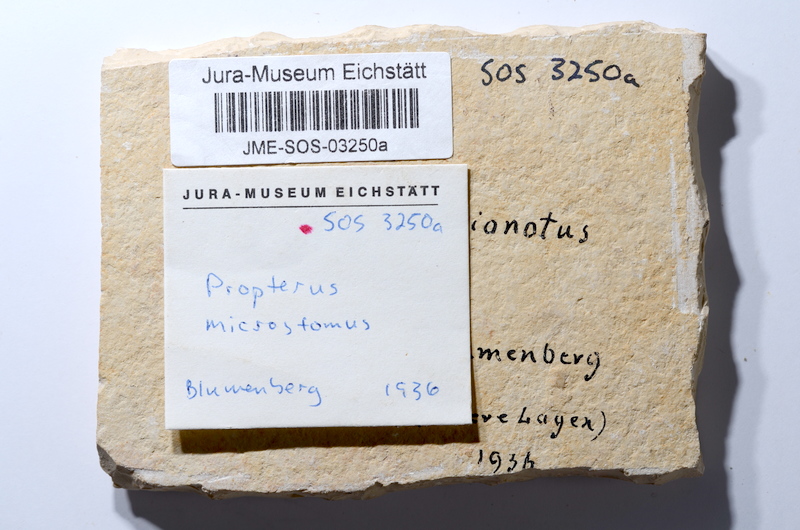 Jura-Museum Eichstätt
JME-SOS-03250a
SOS 3250a
JURA-MUSEUM EICHSTÄTT
SOS 3250a
Propterus
microstomus
Blumenberg 1936
ionotus
menberg
ere Lagen)
1936